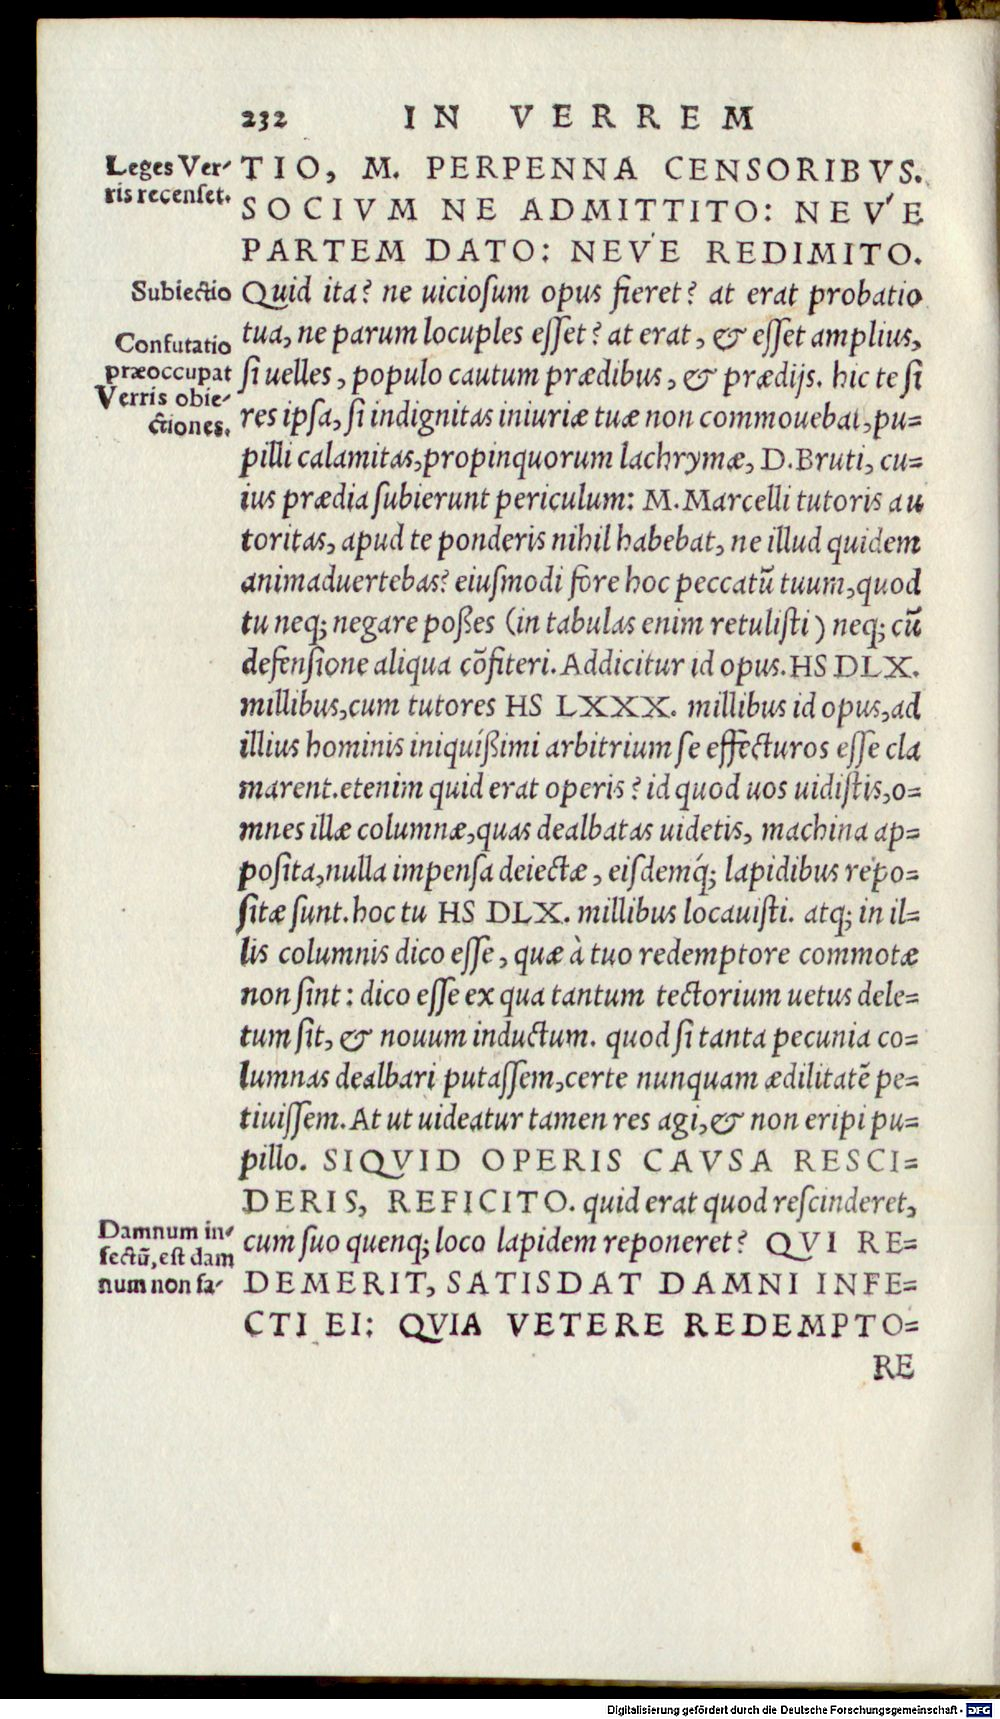 232 IN VERREM
Leges Ver-
ris recenset.
TIO, M. PERPENNA CENSORIBVS.
SOCIVM NE ADMITTITO: NEV'E
PARTEM DATO: NEV'E REDIMITO.
Subiectio
Quid ita? ne uiciosum opus fieret? at erat probatio
Confutatio
præoccupat
Verris obie-
ctiones.
tua, ne parum locuples esset? at erat, & esset amplius,
si uelles, populo cautum prædibus, & prædijs. hic te si
res ipsa, si indignitas iniuriæ tuæ non commouebat, pu=
pilli calamitas, propinquorum lachrymæ, D. Bruti, cu=
ius prædia subierunt periculum: M. Marcelli tutoris au
toritas, apud te ponderis nihil habebat, ne illud quidem
animaduertebas? eiusmodi fore hoc peccatũ tuum, quod
tu neq; negare poßes (in tabulas enim retulisti) neq; cũ
defensione aliqua cõfiteri. Addicitur id opus. HS DLX.
millibus, cum tutores HS LXXX. millibus id opus, ad
illius hominis iniquißimi arbitrium se effecturos esse cla
marent. etenim quid erat operis? id quod uos uidistis, o=
mnes illæ columnæ, quas dealbatas uidetis, machina ap=
posita, nulla impensa deiectæ, eisdemq́; lapidibus repo=
sitæ sunt. hoc tu HS DLX. millibus locauisti. atq; in il=
lis columnis dico esse, quæ à tuo redemptore commotæ
non sint: dico esse ex qua tantum tectorium uetus dele=
tum sit, & nouum inductum. quod si tanta pecunia co=
lumnas dealbari putassem, certe nunquam ædilitatẽ pe=
tiuissem. At ut uideatur tamen res agi, & non eripi pu=
pillo. SIQVID OPERIS CAVSA RESCI=
DERIS, REFICITO. quid erat quod rescinderet,
Damnum in-
fectũ, est dam
num non fa-
cum suo quenq; loco lapidem reponeret? QVI RE=
DEMERIT, SATISDAT DAMNI INFE=
CTI EI: QVIA VETERE REDEMPTO=
RE
Digitalisierung gefördert durch die Deutsche Forschungsgemeinschaft - DFG